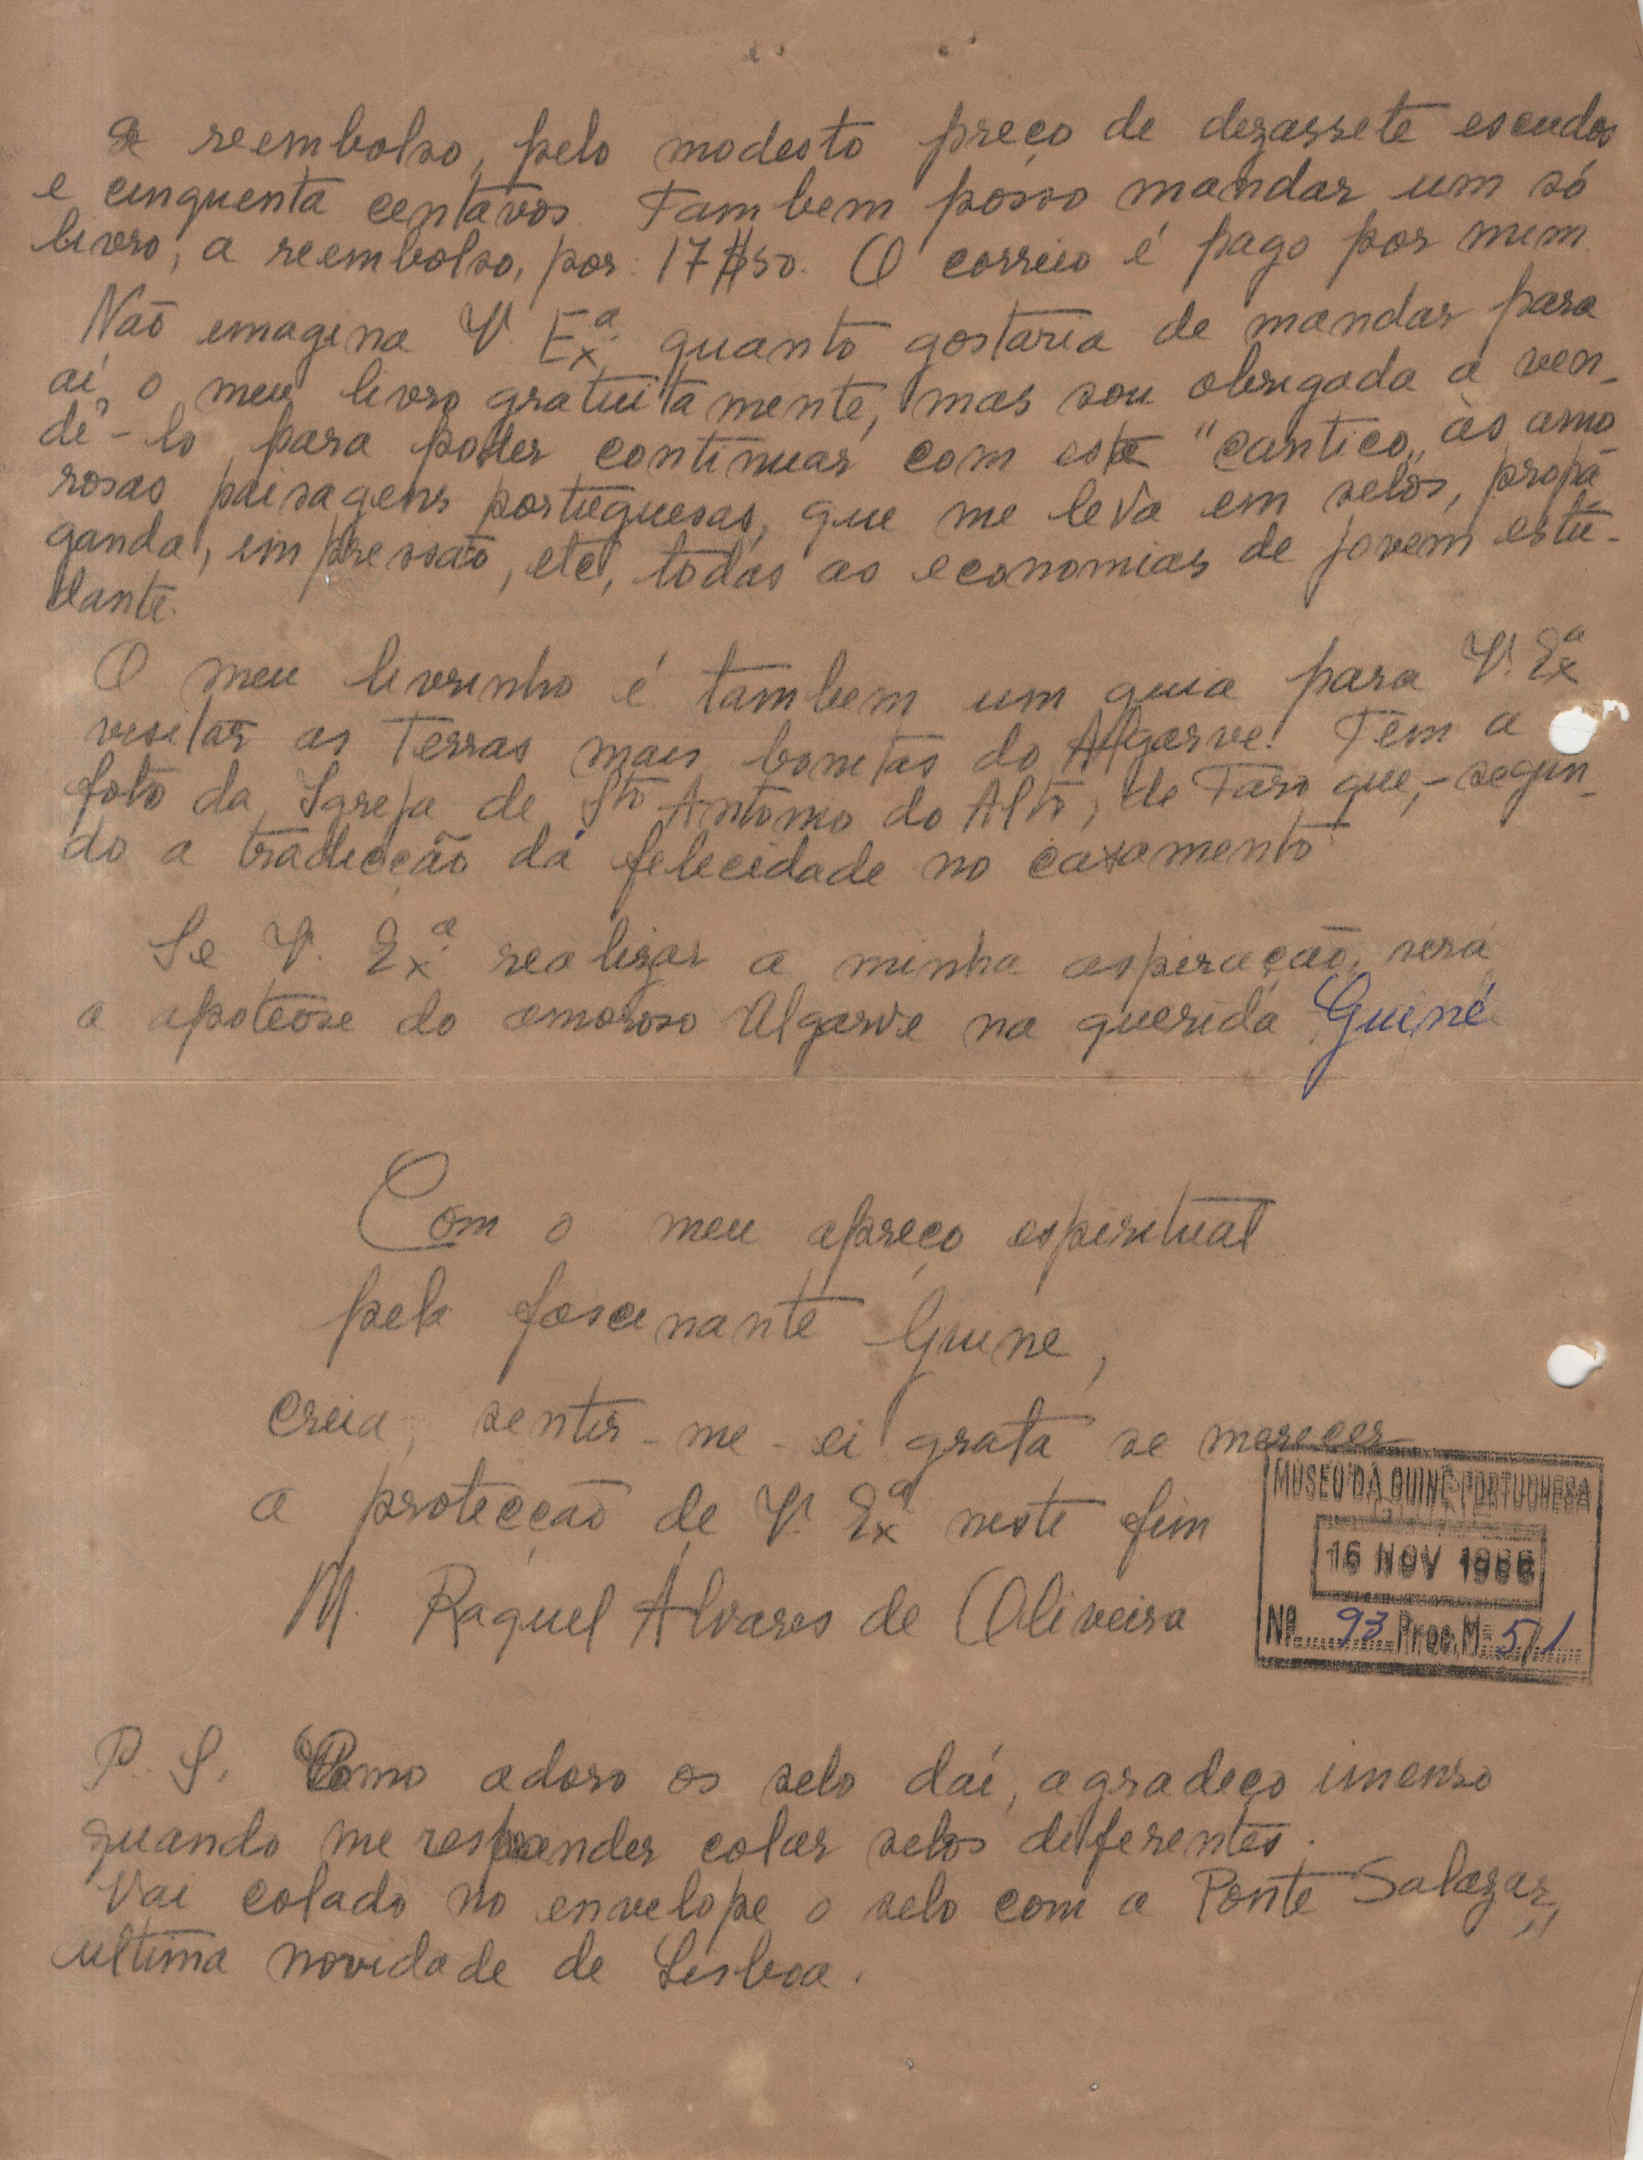 a reembolso, pelo modesto preço de dezassete escudos
e cinquenta centavos. Tambem posso mandar um só
livro, a reembolso, por: 17$50. O correio é pago por mim.
Não imagina V. Exª. quanto gostaria de mandar para
aí o meu livro gratuitamente, mas sou obrigada a ven-
dê-lo para poder continuar com este "cantico" às amo-
rosas paisagens portuguesas, que me leva em selos, propa-
ganda, impressão, etc, todas as economias de jovem estu-
dante.
O meu livrinho é tambem um guia para V. Exª
visitar as Terras mais bonitas do Algarve! Tem a
foto da Igreja de Sto Antonio do Alto, de Faro que, - segun-
do a tradicção dá felecidade no casamento
Se V. Exª. realizar a minha aspiração, será
a apoteose do amoroso Algarve na querida Guiné
Com o meu apreço espiritual
pela fascinante Guine,
creia, sentir-me-ei grata se merecer
a protecção de V. Exª neste fim
M. Raquel Alvares de Oliveira
MUSEU DA GUINÉ PORTUGUESA
16 NOV 1966
Nº 93 Proc. M 5/1
P. S. Como adoro os selo daí, agradeço imenso
quando me responder colar selos diferentes.
Vai colado no envelope o selo com a Ponte Salazar,
ultima novidade de Lisboa.